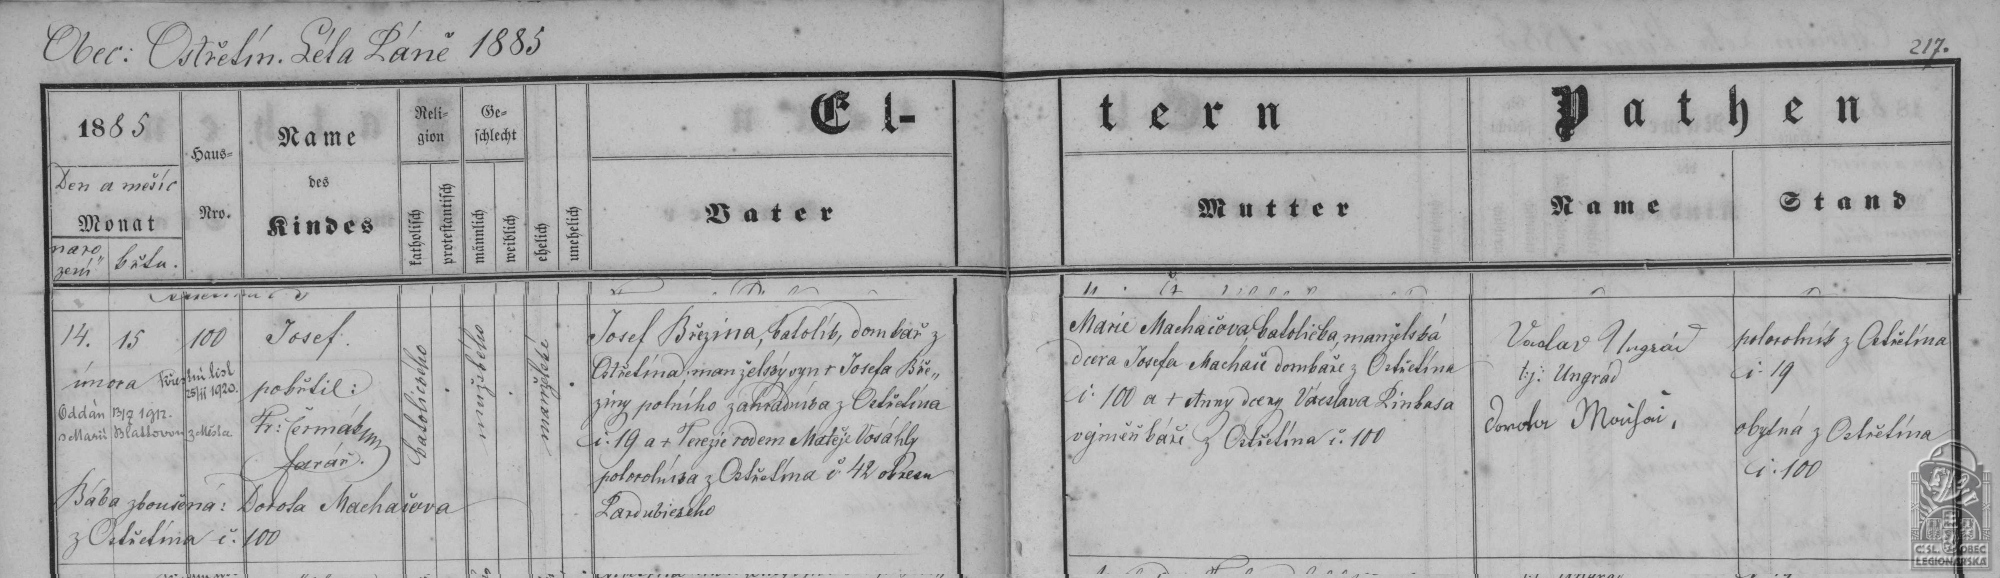 Obec: Ostřetín. Léta Páně 1885
217.
1885
Den a měsíc
Monat
naro
zení
křtu.
Haus-
Nro.
Name
des
Kindes
Reli-
gion
katholisch
protestantisch
Ge-
schlecht
männlich
weiblich
ehelich
unehelich
El-
tern
Vater
Mutter
Pathen
Name
Stand
14. 15
února
100
Křestní list
25/II 1920.
Oddán 13/7 1912.
s Marií Blattovou z Města
Josef.
pokřtil:
Fr: Čermák
farář.
katolického
mužského
manželské
Josef Březina, katolík, domkář z
Ostřetína manželský syn + Josefa Bře„
ziny polního zahradníka z Ostřetína
č. 19 a + Terezie rodem Matěje Vosáhly
polorolníka z Ostřetína č 42 okresu
Pardubického
Marie Machačova, katolička, manželská
dcera Josefa Machače domkáře z Ostřetína
č. 100 a + Anny dcery Václava Pinkasa
výměnkáře z Ostřetína č. 100
Vaclav Ungrád
tj: Ungrád
Dorota
polorolník z Ostřetína
č. 19
obytná z Ostřetína
č. 100
Bába zkoušená: Dorota Machačova
z Ostřetína č. 100
ČS. OBEC
LEGIONÁŘSKÁ